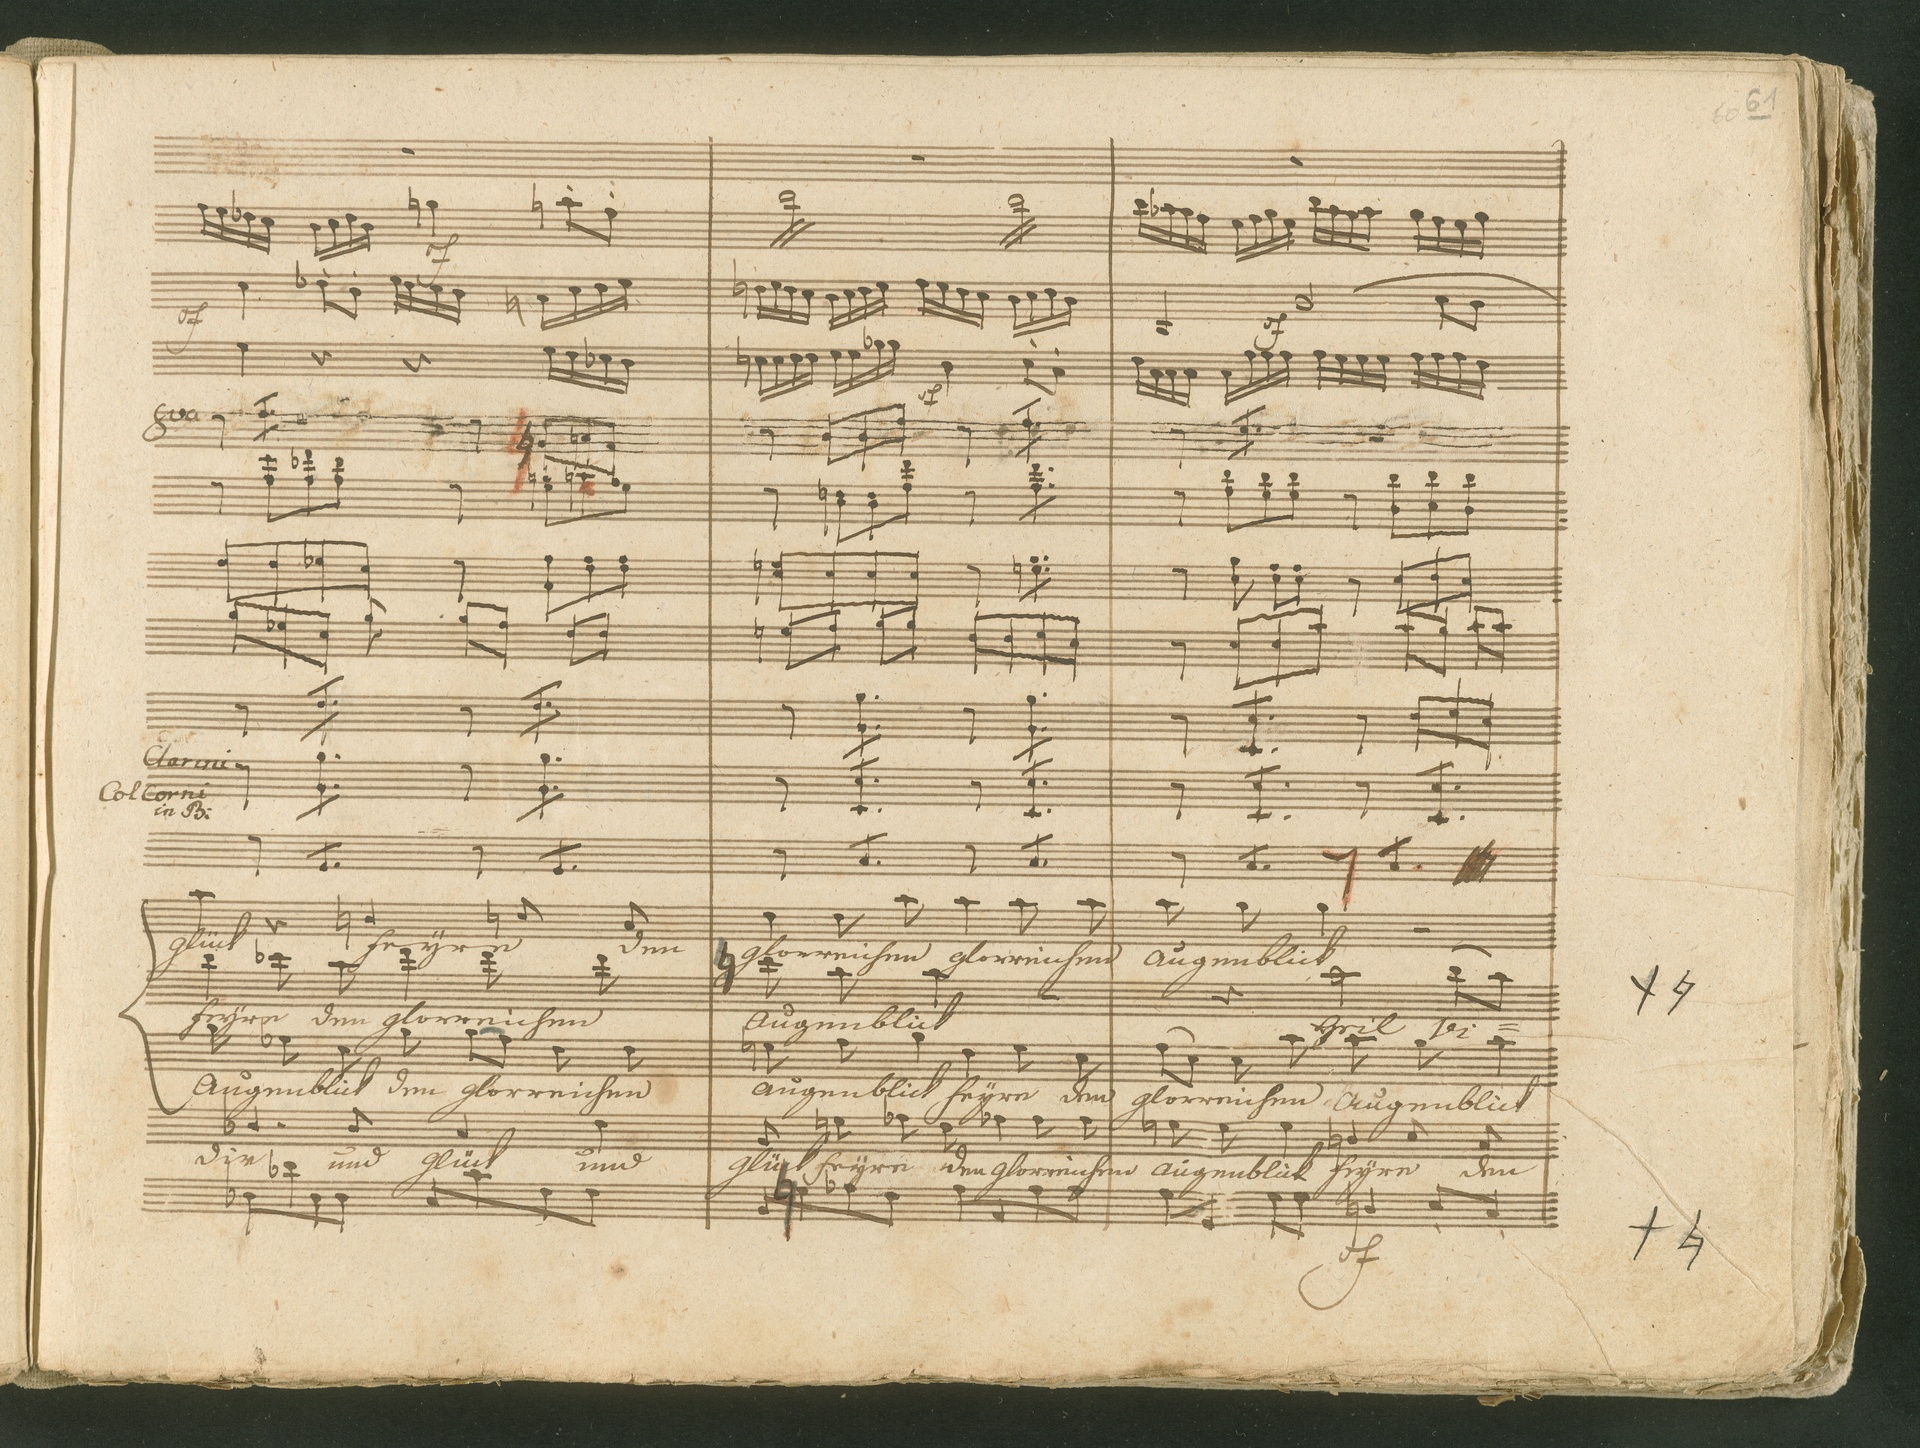 60 61
sf
sf
sf
sf
8va
Clarini
Col Corni
in B:
glück feyre den glorreichen glorreichen Augenblick
feyre den glorreichen Augenblick Heil Vi =
Augenblick den glorreichen Augenblick feyre den glorreichen Augenblick
dir und glück und glück feyre den glorreichen Augenblick feyre den
sf